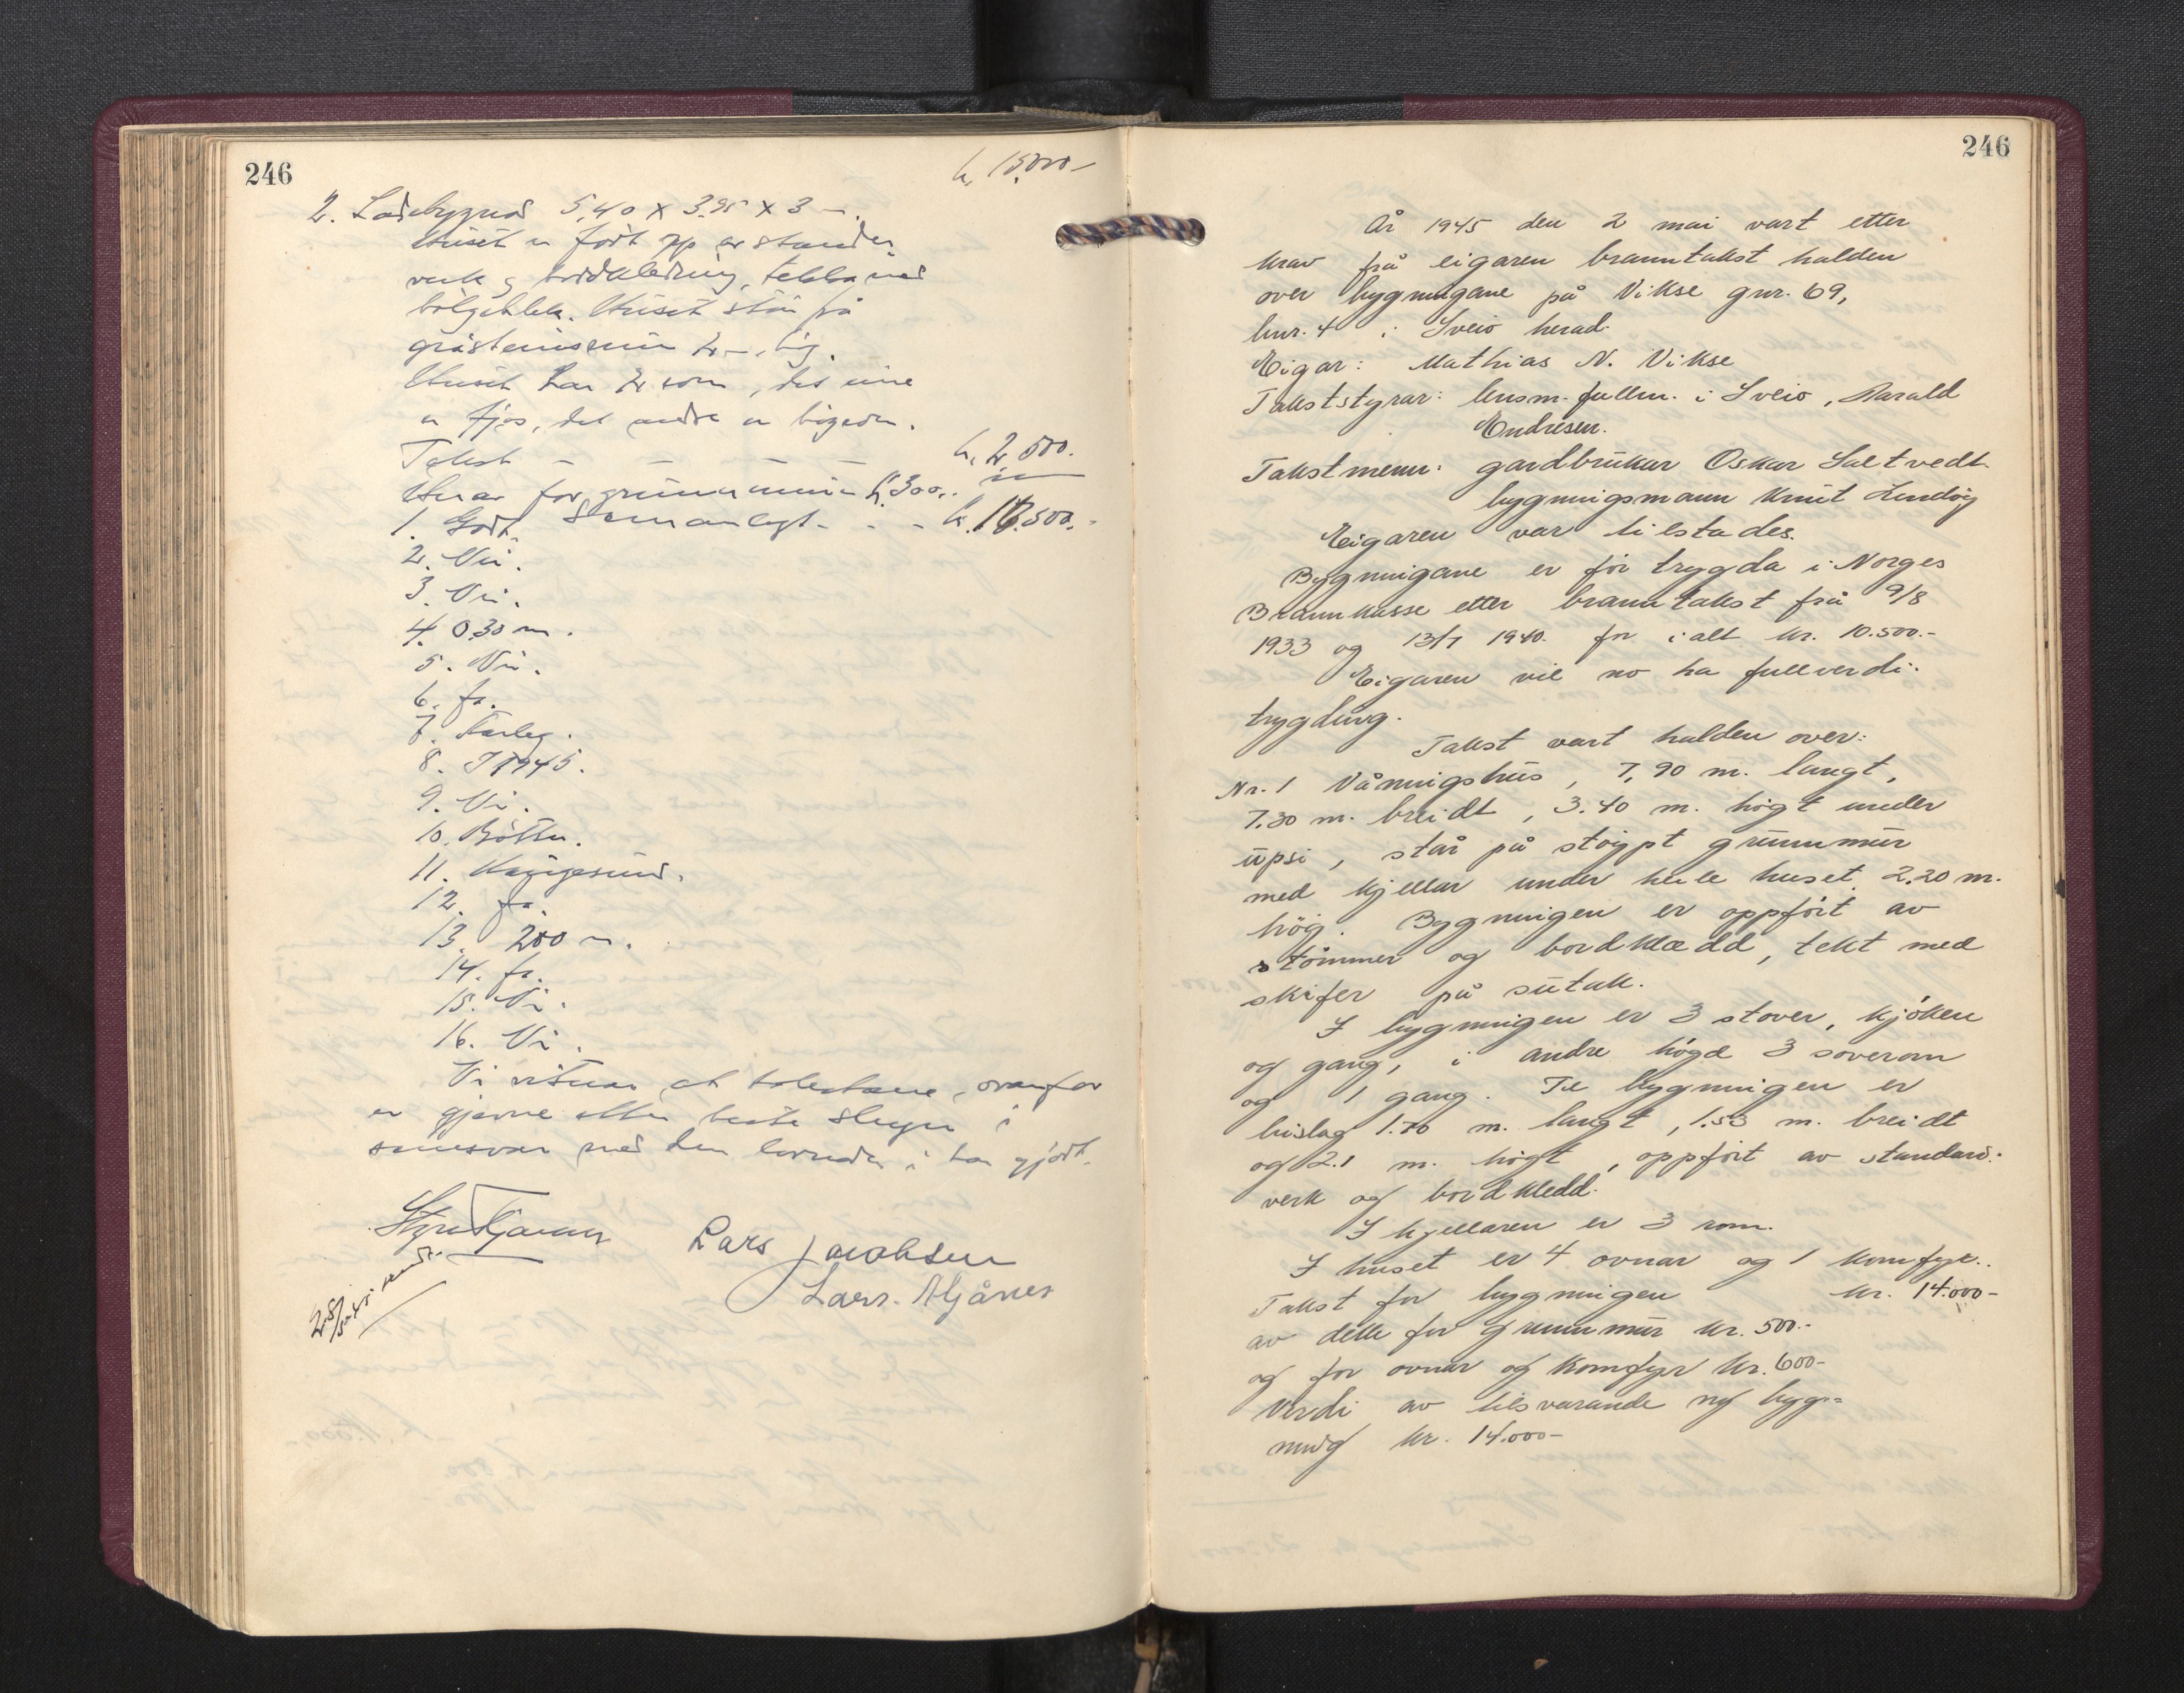 246
k. 15.000-
2. Lødebygnad 5,40 x 3,95 x 3 m.
Huset er ført opp av stender
verk og bordkledning, tekka med
bølgeblek. Huset står på
gråsteinsmur 2 m. høg.
Huset har 2 rom, det eine
er fjøs, det andre er
Takst - - - - k. 2.500.-
Herav for grunnmuren k. 300.-
Samanlagt - - - k. 17.500.-
1. Godt.
2. Nei.
3. Nei.
4. 0.30 m.
5. Nei.
6. Ja.
7. Farleg.
8. I 1945.
9. Nei.
10. Bøtter.
11. Haugesund.
12. Ja.
13. 200 m.
14. Ja.
15. Nei.
16. Nei.
Vi vitnar at takstane ovanfor
er gjevne etter beste skyn i
samsvar med den lovnaden vi har gjort.
Lars Jacobsen
Lars. Mjånes
246
År 1945 den 2 mai vart etter
krav frå eigaren branntakst halden
over bygningane på Vikse gnr. 69,
bnr. 4 i Sveio herad.
Eigar: Mathias N. Vikse
Takststyrar: lensm. fullm. i Sveio, Harald
Endresen.
Takstmenn: gardbrukar Oskar Saltvedt
bygningsmann Knut Lindøy
Eigaren var tilstades.
Bygningane er før trygda i Norges
Brannkasse etter branntakst frå 9/8
1933 og 13/7 1940. for ialt kr. 10.500.-
Eigaren vil no ha fullverdi-
trygding.
Takst vart halden over:
Nr. 1 Våningshus, 7,90 m. langt,
7.30 m. breidt, 3.40 m. høgt under
upsi, står på støypt grunnmur
med kjellar under heile huset 2.20 m.
høg. Bygningen er oppført av
tømmer og bordklædd, tekt med
skifer på sutak.
I bygningen er 3 stover, kjøken
og gang, i andre høgd 3 soverom
og 1 gang. Til bygningen er
bislag 1.70 m. langt, 1.53 m. breidt
og 2.1 m. høgt, oppført av standard-
verk og bordkledd.
I kjellaren er 3 rom.
I huset er 4 ovnar og 1 komfyr.
Takst for bygningen kr. 14.000-
av dette for grunnmur kr. 500.-
og for ovnar og komfyr kr. 600-
Verdi av tilsvarande ny bygg=
ning kr. 14.000-